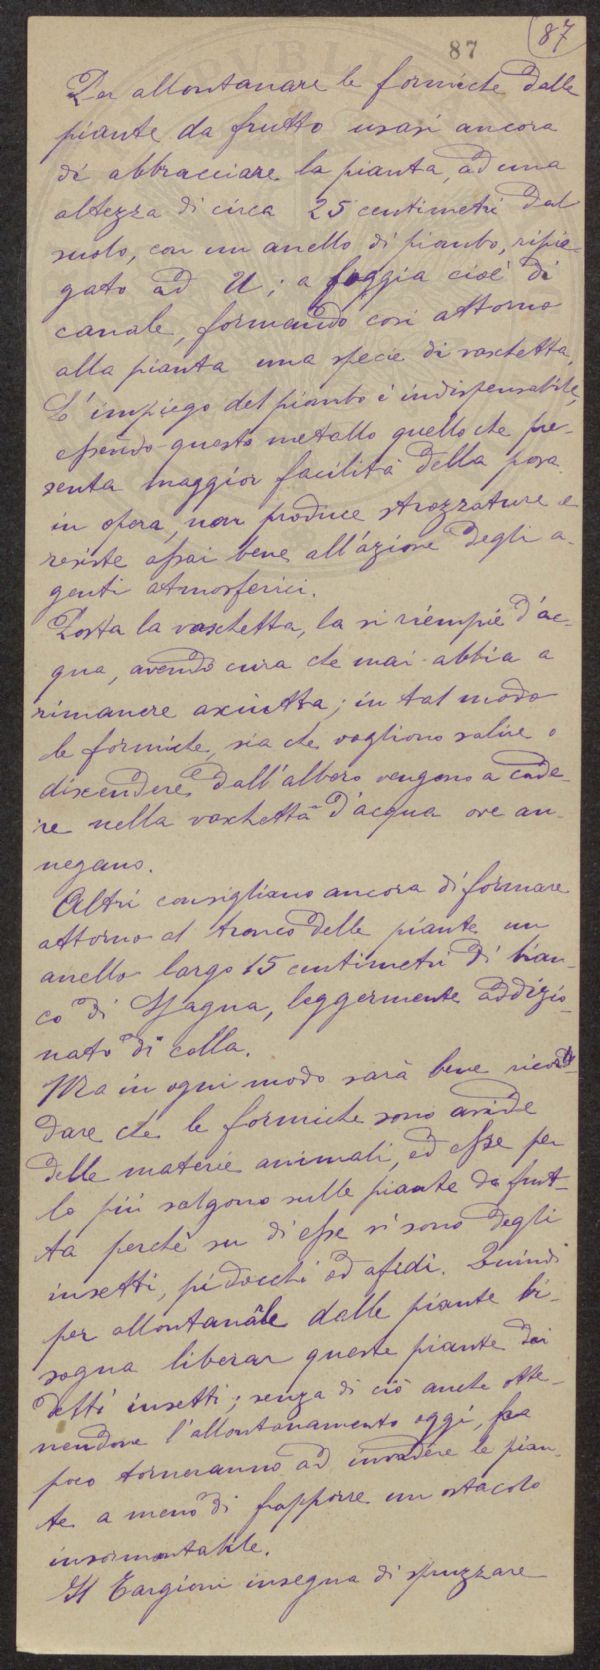 87
87
Per allontanare le formiche dalle
piante da frutto usasi ancora
di abbracciare la pianta, ad una
altezza di circa 25 centimetri dal
suolo, con un anello di piombo, ripie-
gato ad U; a foggia cioè di
canale, formando così attorno
alla pianta una specie di vaschetta.
L'impiego del piombo è indispensabile,
essendo questo metallo quello che pre-
senta maggior facilità della posa
in opera, non produce strozzature e
resiste assai bene all'azione degli a-
genti atmosferici.
Posta la vaschetta, la si riempie d'ac-
qua, avendo cura che mai abbia a
rimanere asciutta; in tal modo
le formiche, sia che vogliono salire o
discendere dall'albero vengono a cade-
re nella vaschetta d'acqua ove an-
negano.
Altri consigliano ancora di formare
attorno al tronco delle piante un
anello largo 15 centimetri di bian-
co di Spagna, leggermente addizio-
nato di colla.
Ma in ogni modo sarà bene ricor-
dare che le formiche sono avide
delle materie animali, ed esse per
lo più salgono sulle piante da frut-
ta perchè su di esse vi sono degli
insetti, pidocchi od afidi. Quindi
per allontanarle dalle piante bi-
sogna liberar queste piante dai
detti insetti; senza di ciò anche otte-
nendone l'allontanamento oggi, fra
poco torneranno ad invadere le pian-
te a meno di frapporre un ostacolo
insormontabile.
Il Targioni insegna di spruzzare